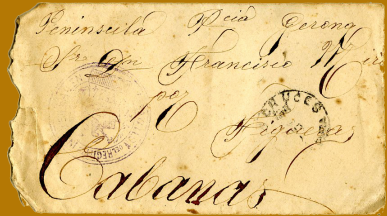 Peninscila Pcia Gerona
Sr Dn Francisco Mir
por Figueras
Cabanas